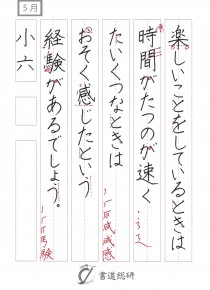 5月
楽しいことをしているときは
時間がたつのが速く
たいくつなときは
おそく感じたという
経験があるでしょう。
小六
書道総研